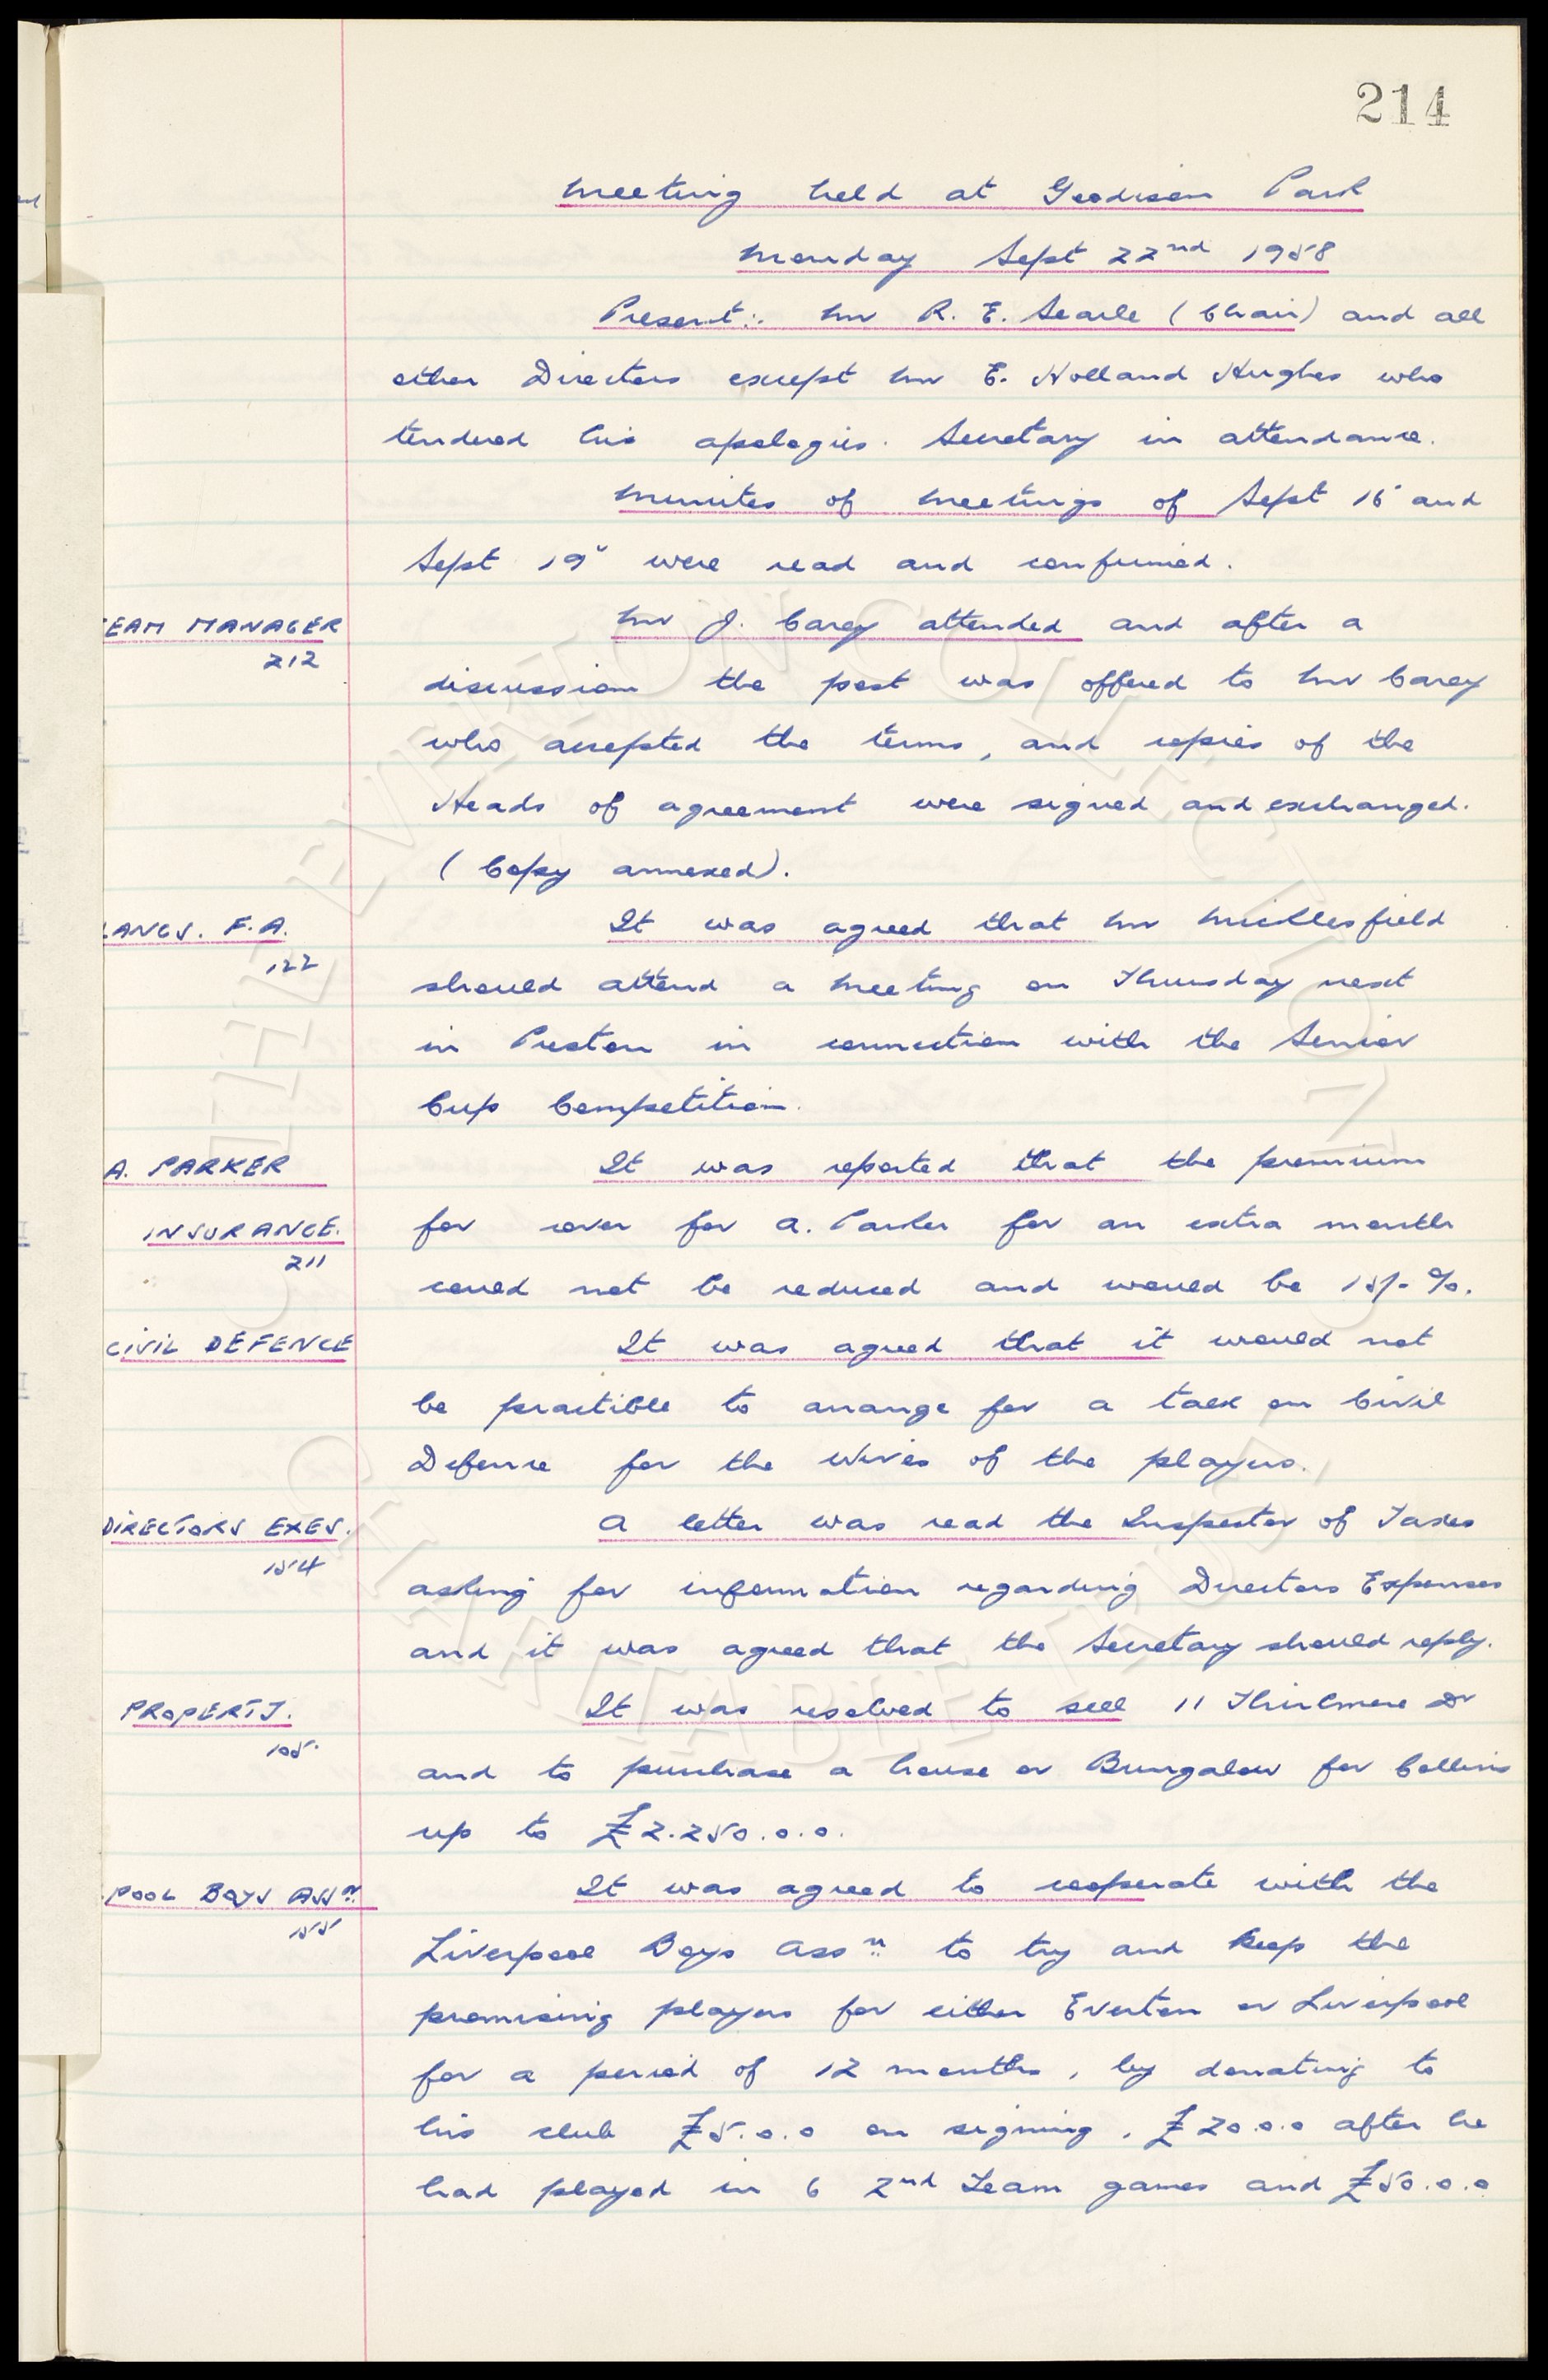 214
Meeting held at Goodison Park
Monday Sept 22nd 1958
Present:. Mr R. E. Searle (Chair) and all
other Directors except Mr E. Holland Hughes who
tendered his apologies. Secretary in attendance.
Minutes of Meetings of Sept 16" and
Sept 19" were read and confirmed.
EAM MANAGER
212
Mr J. Carey attended and after a
discussion the post was offered to Mr Carey
who accepted the terms, and copies of the
Heads of agreement were signed and exchanged.
(Copy annexed).
LANCS. F.A.
122
It was agreed that Mr Micklesfield
should attend a Meeting on Thursday next
in Preston in connection with the Senior
Cup Competition.
A. PARKER
INSURANCE.
211
It was reported that the premium
for cover for A. Parker for an extra month
could not be reduced and would be 15/- %.
CIVIL DEFENCE
It was agreed that it would not
be practible to arrange for a talk on Civil
Defence for the Wives of the players.
DIRECTORS EXES.
154
A letter was read the Inspector of Taxes
asking for information regarding Directors Expenses
and it was agreed that the Secretary should reply.
PROPERTY.
105.
It was resolved to sell 11 Thirlmere Dr
and to purchase a house or Bungalow for Collins
up to £2.250.0.0.
POOL BOYS ASSN
155
It was agreed to cooperate with the
Liverpool Boys Assn to try and keep the
promising players for either Everton or Liverpool
for a period of 12 months, by donating to
his club £5.0.0 on signing, £20.0.0 after he
had played in 6 2nd Team games and £50.0.0
THE EVERTON COLLECTION
CHARITABLE TRUST